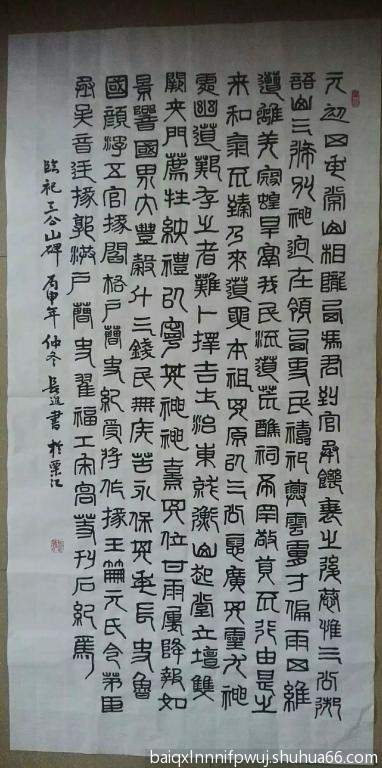 元初四年常山相隴西馮君到官承饑衰之後惟三公御
語山三條別神迥在領西吏民禱祀興雲膚寸偏雨四維
遭離羌寇蝗旱鬲我民流道荒醮祠希罕敬奠不行由是之
來和氣不臻乃來道要本祖其原以三公德廣其靈尤神
處幽道艱存之者難卜擇吉土治東就衡山起堂立壇雙
闕夾門薦牲納禮以寧其神神熹其位甘雨屢降報如
景響國界大豐穀斗三錢民無疾苦永保其年長史魯
國顏浮五官掾閻祐戶曹史紀受將作掾王元氏令茅匡
丞吳音廷掾郭戶曹史翟福工宋高等刊石紀焉
臨祀三公山碑 丙申年仲冬 長進書於栗江
baiqxlnnnifpwuj.shuhua66.com